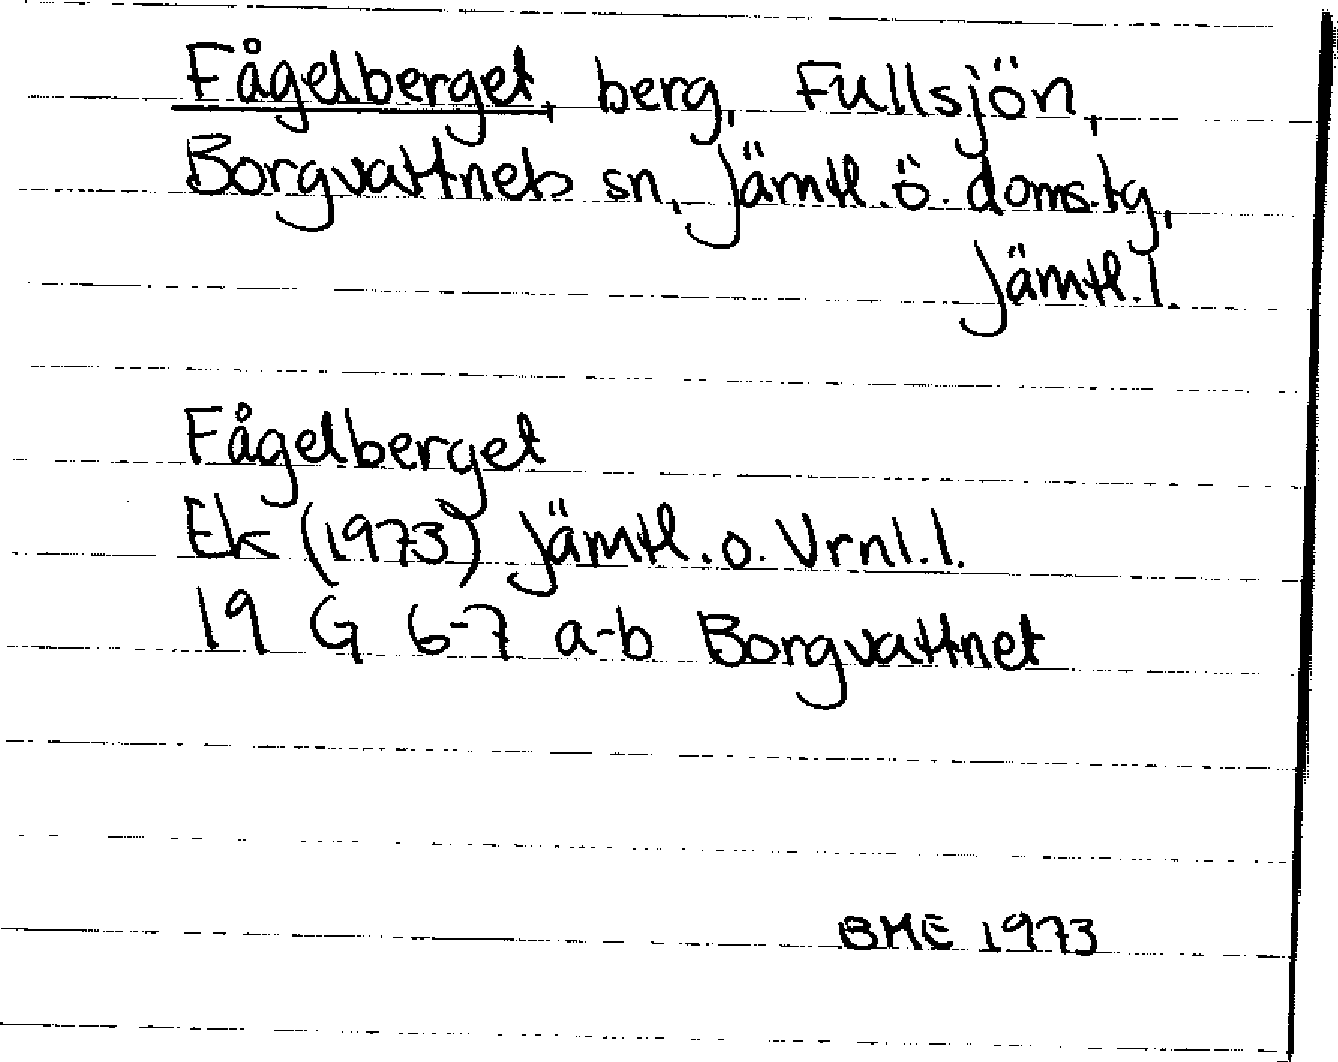 Fågelberget, berg, Fullsjön,
Borgvattnets sn, Jämtl. ö. doms.tg,
Jämtl. l.
Fågelberget
Ek (1973) Jämtl. o. Vrnl. l.
19 G 6-7 a-b Borgvattnet
BME 1973